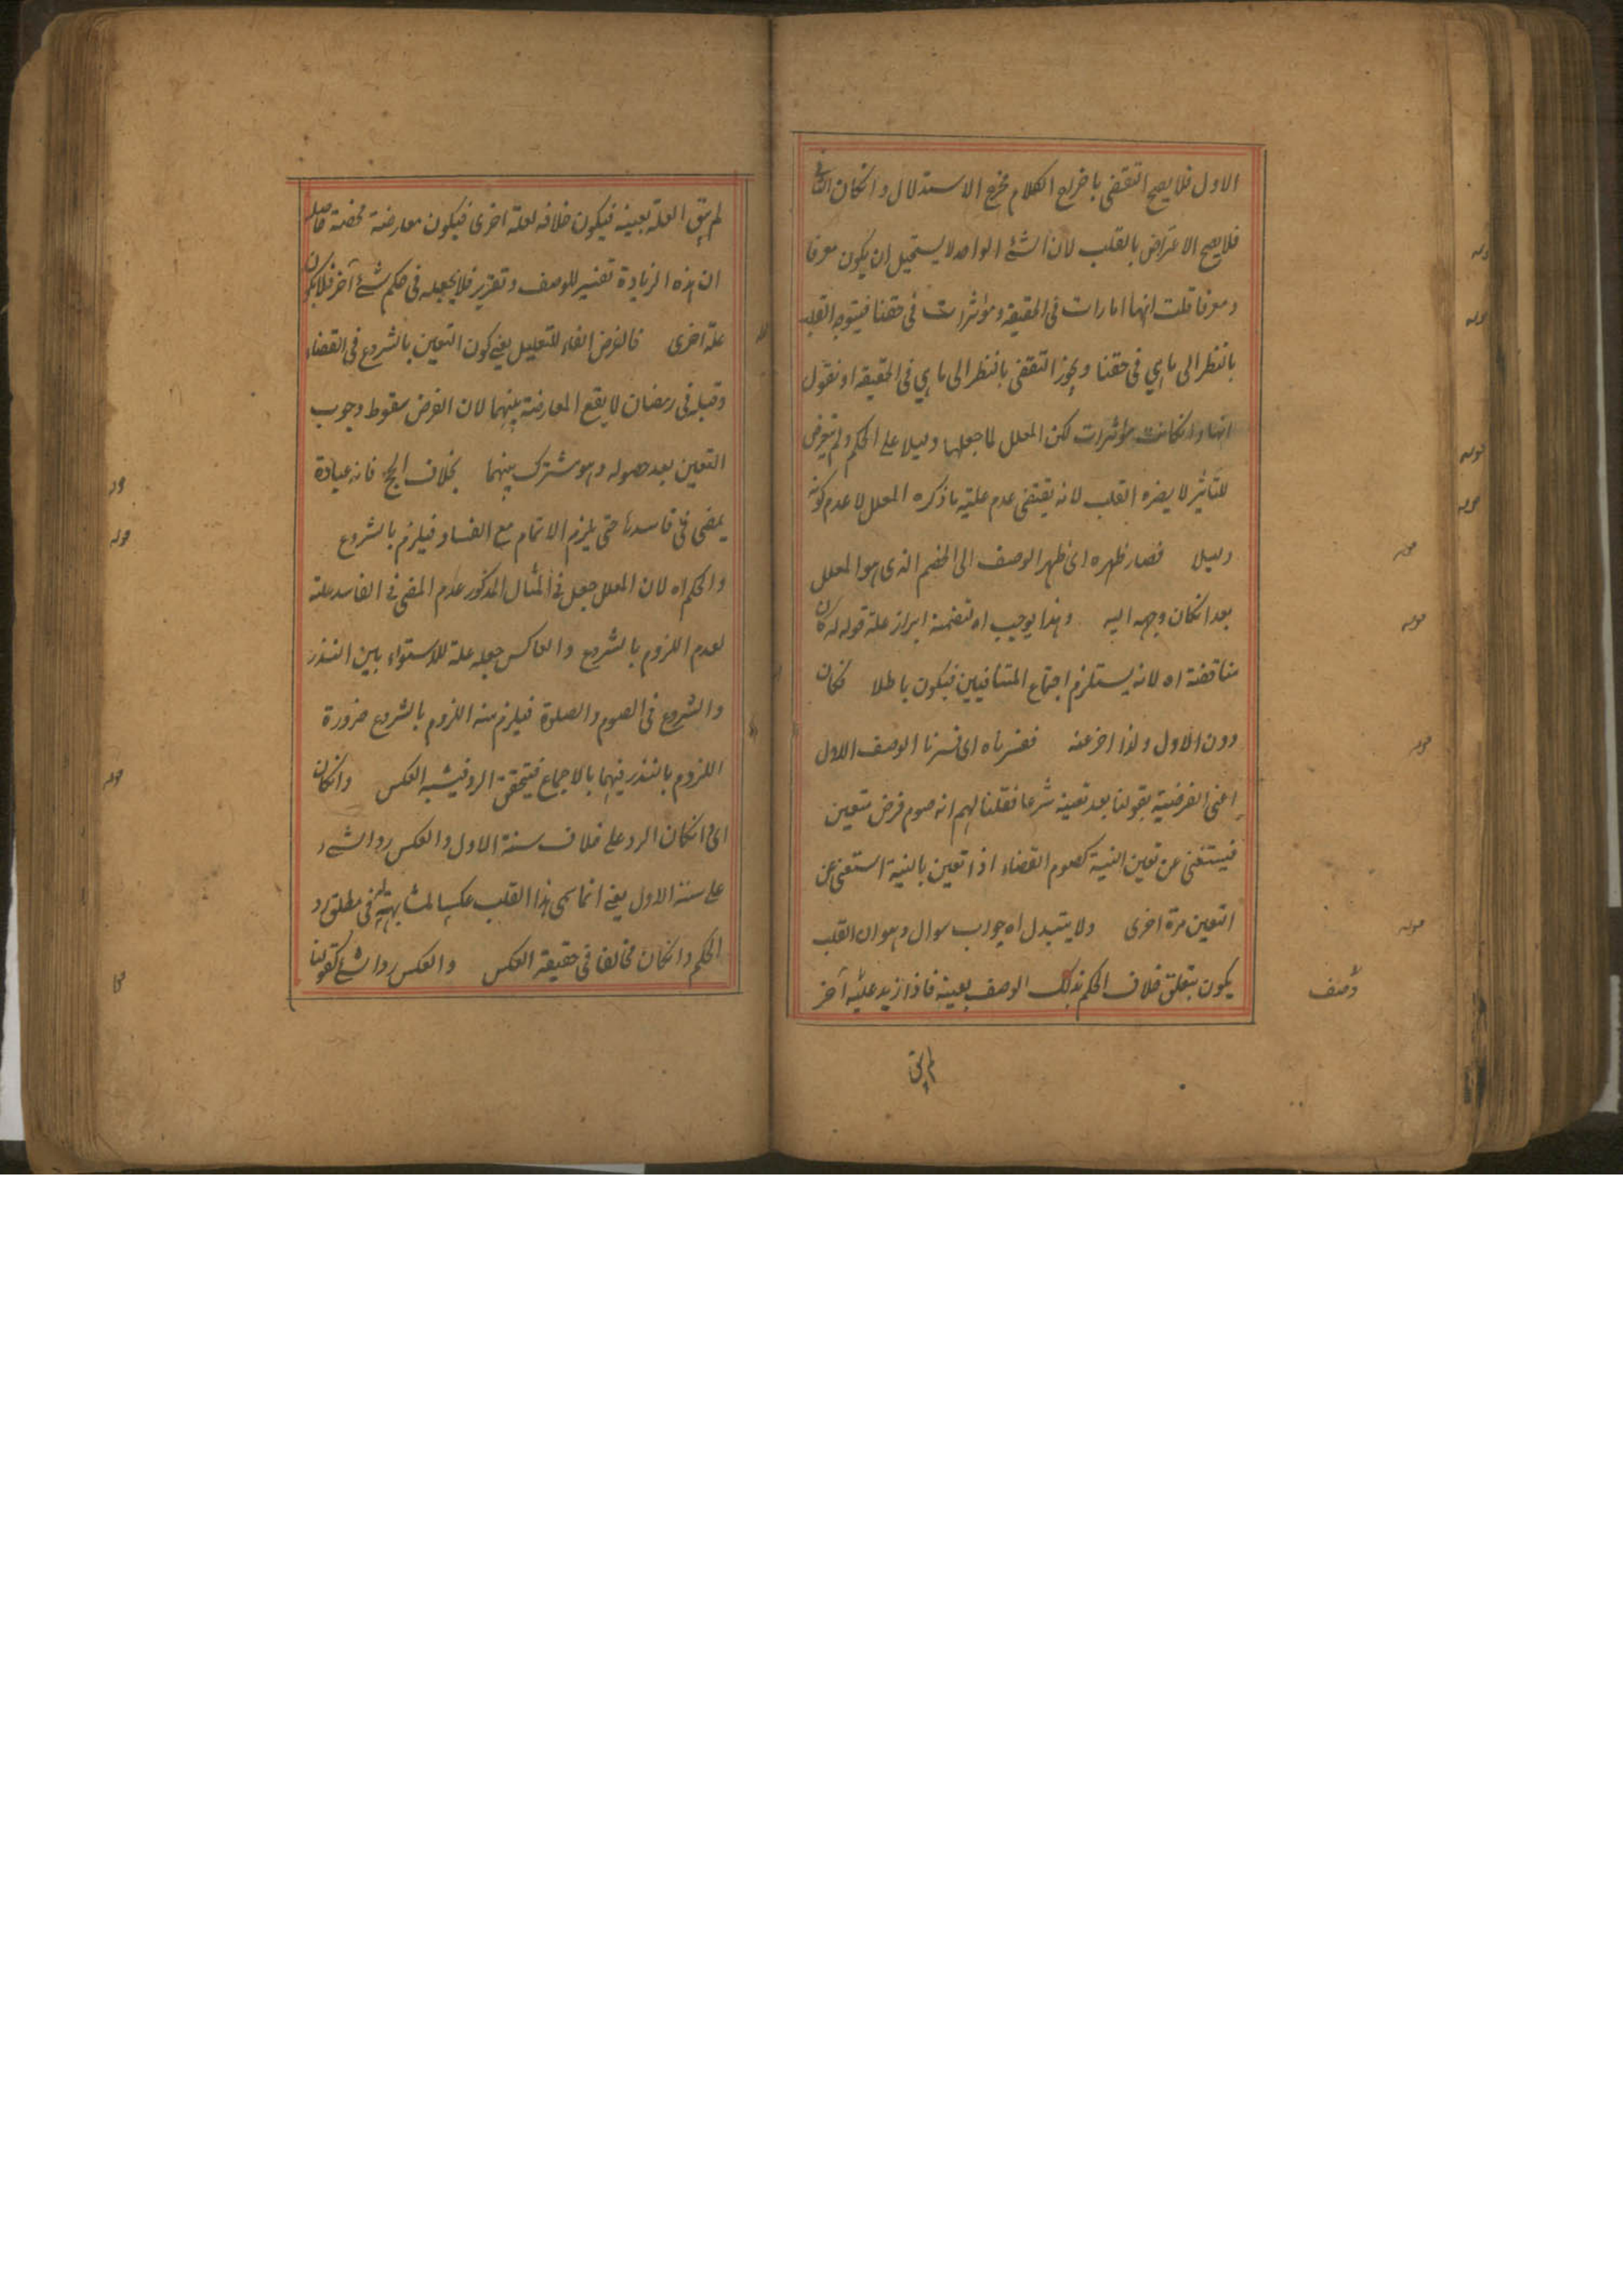 الاول فلا يصح التقضى باخراج الكلام مخرج الاستدلال وانكان الثانى
فلا يصح الاعتراض بالقلب لان الشئ الواحد لا يستحيل ان يكون معرفا
ومعرفا قلت انها امارات فى الحقيقة ومؤثرات فى حقنا فيتوجه القلب
بالنظر الى ما هى فى حقنا ويجوز التقضى بالنظر الى ما هى فى الحقيقة او نقول
انها وانكانت مؤثرات لكن المعلل لما جعلها دليلا على الحكم ولم يتعرض
للتأثير لا يضره القلب لانه يقتضى عدم علية ما ذكره المعلل لا عدم كونه
دليلا فصار ظهره اى ظهر الوصف الى الخصم الذى هو المعلل
بعد انكان وجهه اليه وهذا يوجب اه تتضمنه ابراز علة قوله كان
مناقضة اه لانه يستلزم اجتماع المتنافيين فيكون باطلا فكان
دون الاول ولذا اخر عنه ففسرناه اى فسرنا الوصف الاول
اعنى الفرضية بقولنا بعد تعينه شرعا فقلنا لهم انه صوم فرض متعين
فيستغنى عن تعين النية كصوم القضاء اذا تعين بالنية استغنى عن
التعين مرة اخرى ولا يتبدل اه جواب سوال وهو ان القلب
يكون بتعلق خلاف الحكم بذلك الوصف بعينه فاذا زيد عليه آخر
وصف
لم يبق
لم يبق العلة بعينه فيكون خلافه لعلة اخرى فيكون معارضة محضة حاصله
ان هذه الزيادة تفسير للوصف وتقرير فلا يجعله فى حكم شئ آخر فلا يكون
علة اخرى فالغرض الفاء للتعليل يعنى كون التعين بالشروع فى القضاء
وقبله فى رمضان لا يقع المعارضة بينهما لان الغرض سقوط وجوب
التعين بعد حصوله وهو مشترك بينهما بخلاف الحج فانه عبادة
يمضى فى فاسدها حتى يلزم الاتمام مع الفساد فيلزم بالشروع
والحكم اه لان المعلل جعل فى المثال المذكور عدم المضى فى الفاسد علة
لعدم اللزوم بالشروع والعاكس جعله علة للاستواء بين النذر
والشروع فى الصوم والصلوة فيلزم منه اللزوم بالشروع ضرورة
اللزوم بالنذر فيهما بالاجماع فيتحقق الرد فيشبه العكس وانكان
اى انكان الرد على خلاف سنة الاول والعكس رد الشئ
على سننه الاول يعنى انما سمى هذا القلب عكسا لمشابهته فى مطلق رد
الحكم وانكان مخالفا فى حقيقة العكس والعكس رد الشئ كقولنا